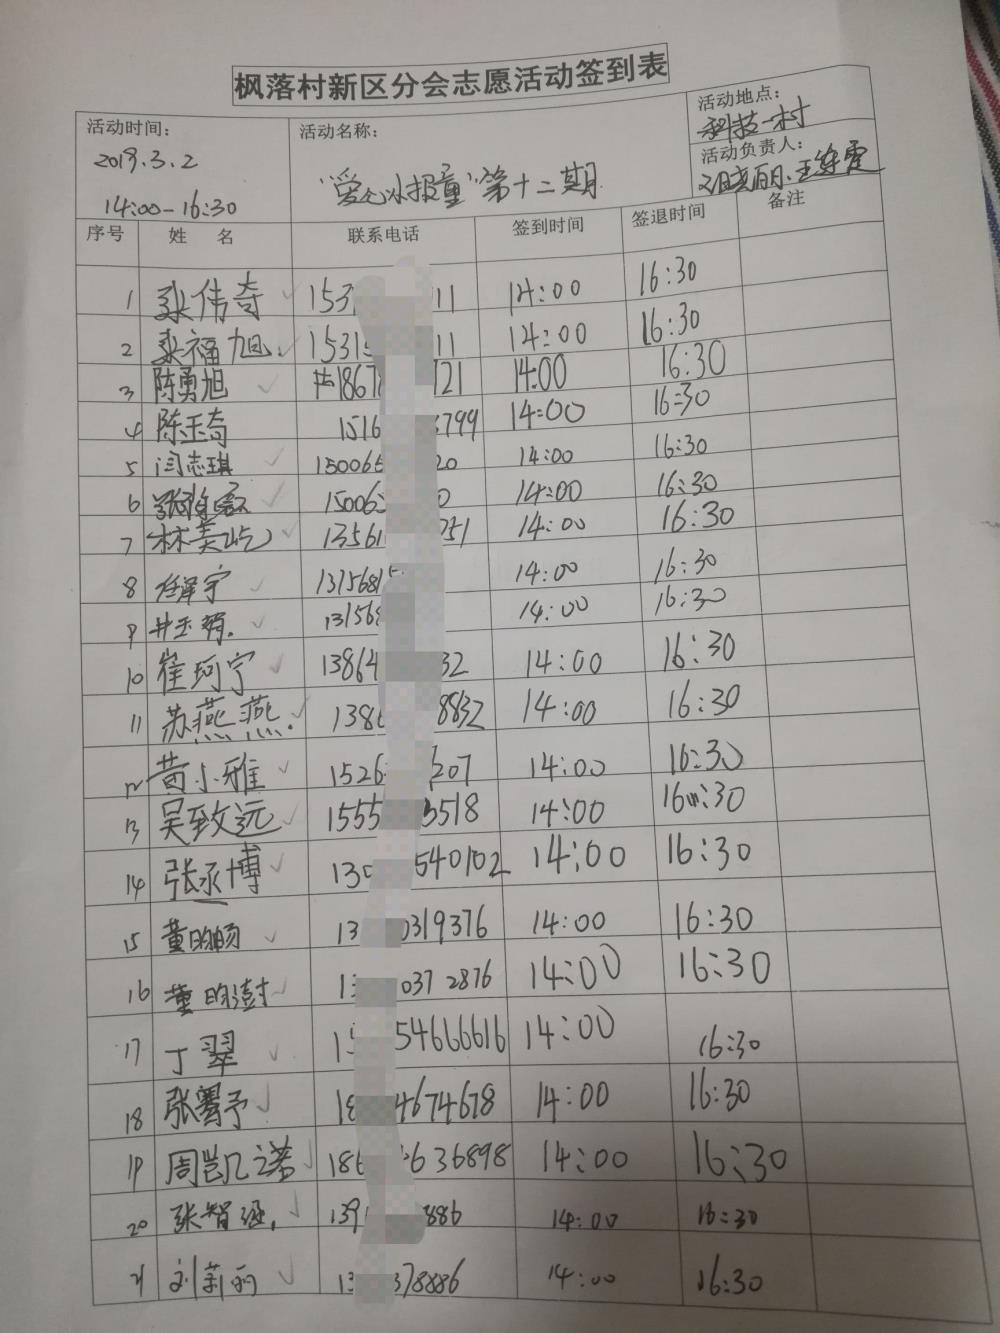 枫落村新区分会志愿活动签到表
活动时间：
2019.3.2
14:00-16:30
活动名称：
"爱心冰报童"第十二期
活动地点：
科技一村
活动负责人：
序号 姓 名 联系电话 签到时间 签退时间 备注
1 张伟奇 153 11 14:00 16:30
2 福旭 15315 11 14:00 16:30
3 陈勇旭 1867 121 14:00 16:30
4 陈玉奇 1516 3799 14:00 16:30
5 闫志琪 150065 20 14:00 16:30
6 15006 0 14:00 16:30
7 林美屹 13561 751 14:00 16:30
8 任泽宇 1315681 14:00 16:30
9 井玉 13156 14:00 16:30
10 崔珂宁 1386 32 14:00 16:30
11 苏燕燕 138 8832 14:00 16:30
12 黄小雅 1526 207 14:00 16:30
13 吴致远 1555 3518 14:00 16:30
14 张承博 130 540102 14:00 16:30
15 董昀畅 13 0319376 14:00 16:30
16 董昀澍 13 0372876 14:00 16:30
17 丁翠 15 54666616 14:00 16:30
18 张骞予 18 4674678 14:00 16:30
19 周凯诺 186 636898 14:00 16:30
20 张智涵 139 8886 14:00 16:30
21 刘莉莉 13 378886 14:00 16:30